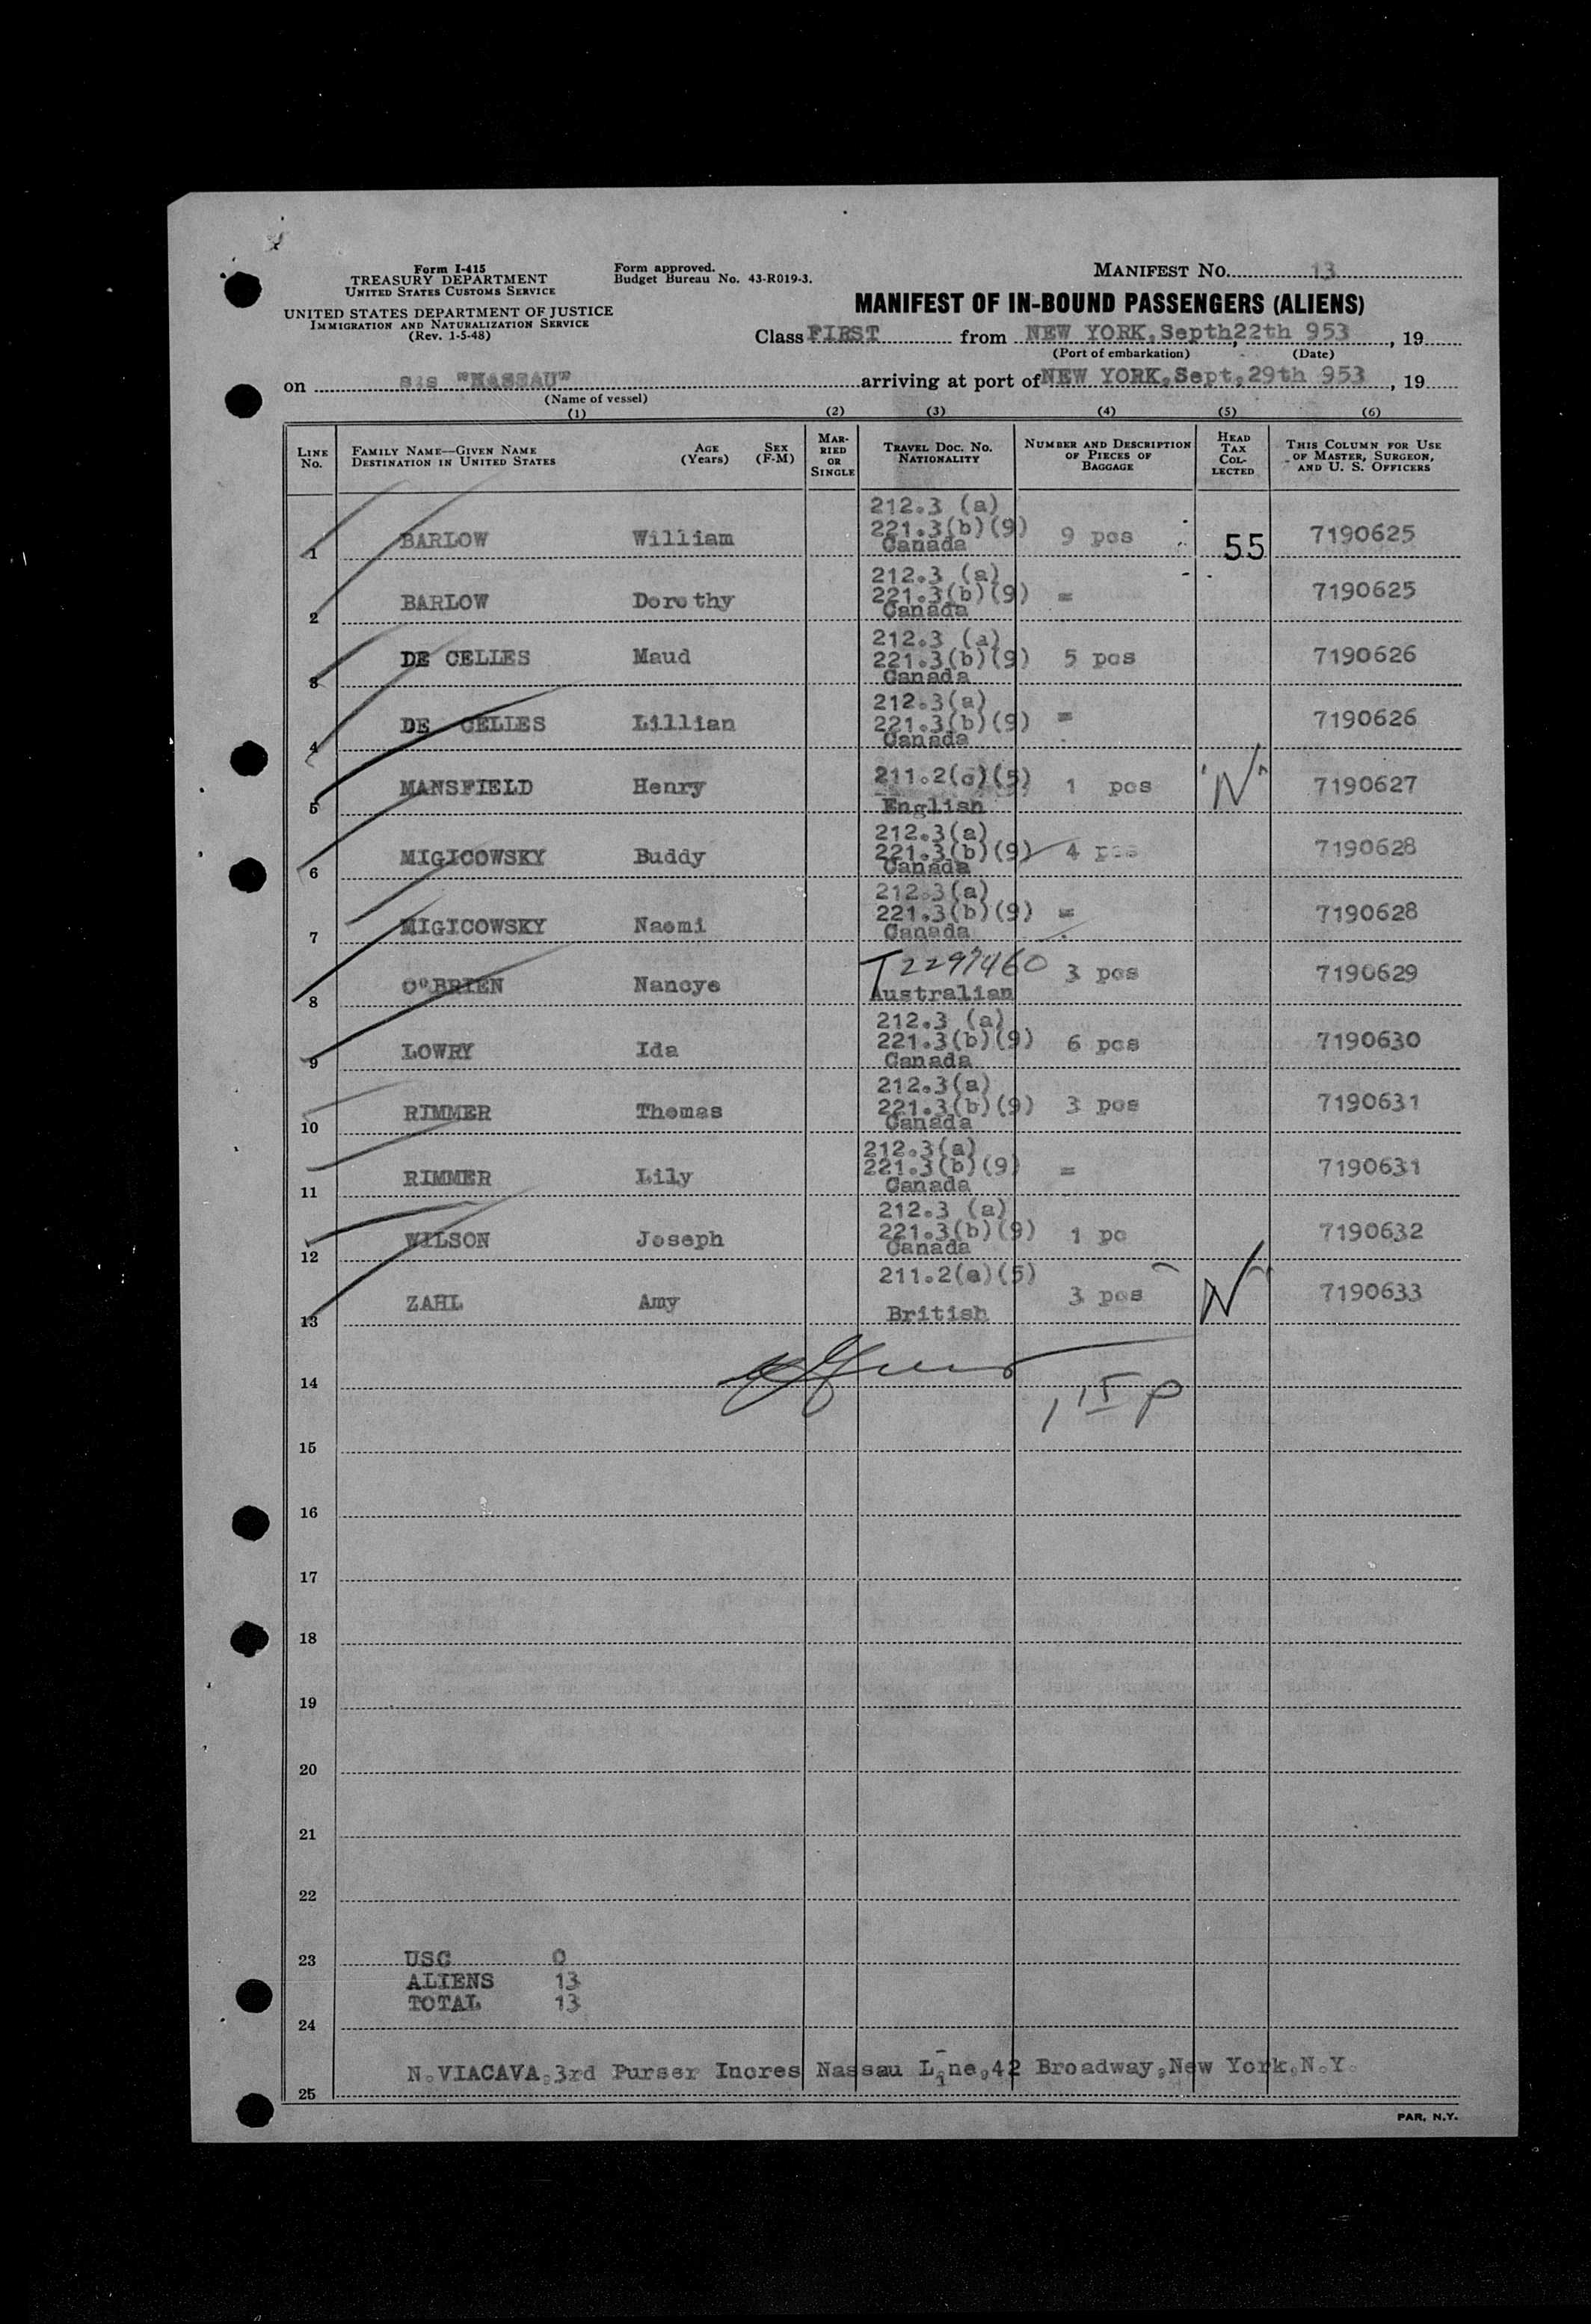 Form I-415
TREASURY DEPARTMENT
UNITED STATES CUSTOMS SERVICE
UNITED STATES DEPARTMENT OF JUSTICE
IMMIGRATION AND NATURALIZATION SERVICE
(Rev. 1-5-48)
Form approved.
Budget Bureau No. 43-R019-3.
MANIFEST NO. 13
MANIFEST OF IN-BOUND PASSENGERS (ALIENS)
Class FIRST from NEW YORK, Septh22th 953, 19
(Port of embarkation) (Date)
on s:s "NASSAU" arriving at port of NEW YORK, Sept, 29th 953, 19
(Name of vessel)
(1) (2) (3) (4) (5) (6)
LINE No. FAMILY NAME—GIVEN NAME DESTINATION IN UNITED STATES AGE (Years) SEX (F-M) MARRIED OR SINGLE TRAVEL DOC. NO. NATIONALITY NUMBER AND DESCRIPTION OF PIECES OF BAGGAGE HEAD TAX COLLECTED THIS COLUMN FOR USE OF MASTER, SURGEON, AND U. S. OFFICERS
1 BARLOW William 212.3 (a) 221.3(b)(9) Canada 9 pcs 55 7190625
2 BARLOW Dorothy 212.3 (a) 221.3(b)(9) Canada = 7190625
3 DE CELLES Maud 212.3 (a) 221.3(b)(9) Canada 5 pcs 7190626
4 DE CELLES Lillian 212.3(a) 221.3(b)(9) Canada = 7190626
5 MANSFIELD Henry 211.2(c)(5) English 1 pcs "N" 7190627
6 MIGICOWSKY Buddy 212.3(a) 221.3(b)(9) Canada 4 pcs 7190628
7 MIGICOWSKY Naomi 212.3(a) 221.3(b)(9) Canada = 7190628
8 O"BRIEN Nancye T2297460 Australian 3 pcs 7190629
9 LOWRY Ida 212.3 (a) 221.3(b)(9) Canada 6 pcs 7190630
10 RIMMER Thomas 212.3(a) 221.3(b)(9) Canada 3 pcs 7190631
11 RIMMER Lily 212.3(a) 221.3(b)(9) Canada = 7190631
12 WILSON Joseph 212.3 (a) 221.3(b)(9) Canada 1 pc 7190632
13 ZAHL Amy 211.2(a)(5) British 3 pcs N 7190633
14
115 p
15
16
17
18
19
20
21
22
23 USC 0
ALIENS 13
TOTAL 13
24
N.VIACAVA,3rd Purser Incres Nassau Line,42 Broadway,New York,N.Y.
25
PAR, N.Y.